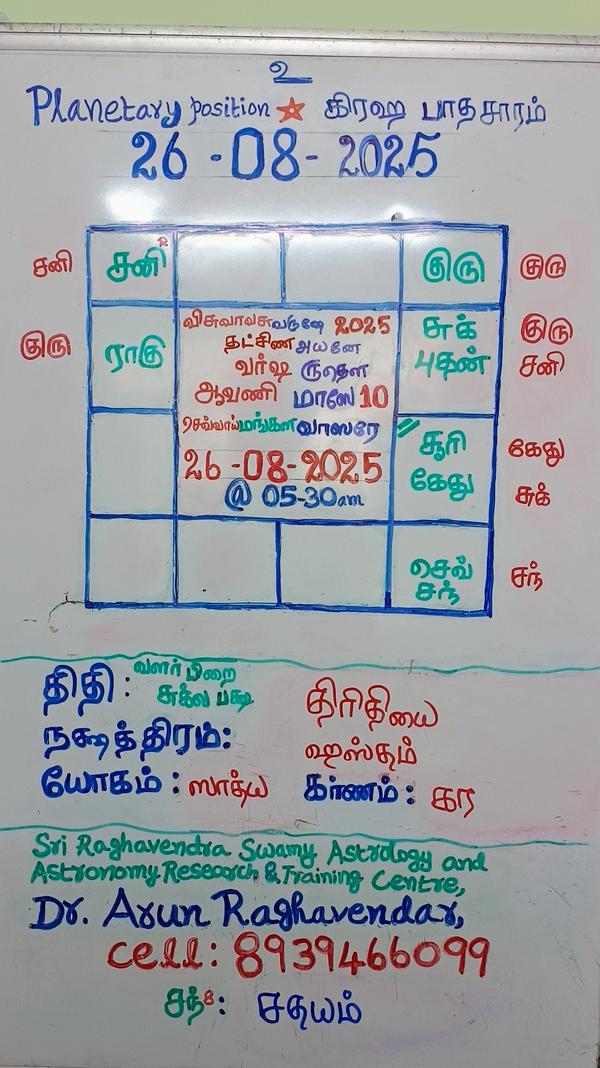 உ
Planetary position ★ கிரஹ பாதசாரம்
26-08-2025
சனி சனி R குரு குரு
குரு ராகு சுக் குரு
புதன் சனி
சூரி கேது
கேது சுக்
செவ் சந்
சந்
விசுவாவசுவருஷே 2025
தட்சிண அயனே
வர்ஷ ருதௌ
ஆவணி மாஸே 10
செவ்வாய் மங்கள வாஸரே
26-08-2025
@ 05-30am
திதி: வளர் பிறை
சுக்ல பக்ஷ திரிதியை
நக்ஷத்திரம்: ஹஸ்தம்
யோகம்: ஸாத்ய கர்ணம்: கர
Sri Raghavendra Swamy Astrology and
Astronomy Research & Training Centre,
Dr. Arun Raghavendar,
Cell: 8939466099
சந் 8: சதயம்